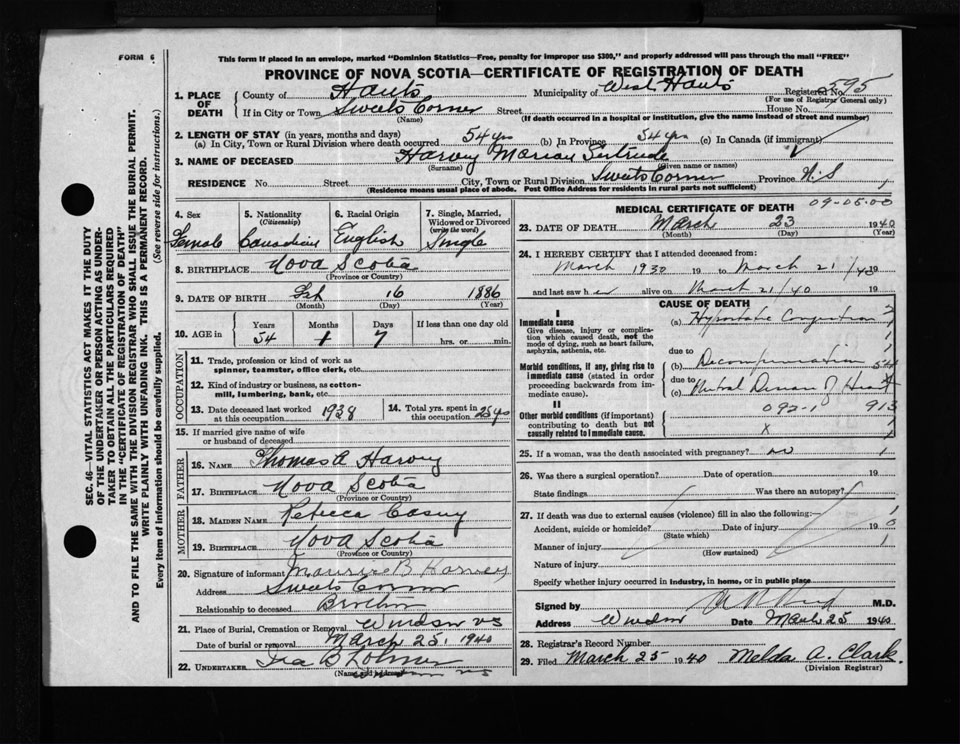 FORM 6
This form if placed in an envelope, marked "Dominion Statistics—Free, penalty for improper use $300," and properly addressed will pass through the mail "FREE"
PROVINCE OF NOVA SCOTIA—CERTIFICATE OF REGISTRATION OF DEATH
1. PLACE OF DEATH
County of Hants Municipality of West Hants Registered No. 595
(For use of Registrar General only)
If in City or Town Sweets Corner Street House No.
(Name) (If death occurred in a hospital or institution, give the name instead of street and number)
2. LENGTH OF STAY (in years, months and days)
(a) In City, Town or Rural Division where death occurred 54 yrs (b) In Province 54 yrs (c) In Canada (if immigrant)
3. NAME OF DECEASED Harvey Marian Gertrude
(Surname) (Given name or names)
RESIDENCE No. Street City, Town or Rural Division Sweets Corner Province N.S
(Residence means usual place of abode. Post Office Address for residents in rural parts not sufficient)
4. Sex Female
5. Nationality (Citizenship) Canadian
6. Racial Origin English
7. Single, Married, Widowed or Divorced (write the word) Single
8. BIRTHPLACE Nova Scotia
(Province or Country)
9. DATE OF BIRTH Feb 16 1886
(Month) (Day) (Year)
10. AGE in Years 54 Months 1 Days 7 If less than one day old hrs. or min.
OCCUPATION
11. Trade, profession or kind of work as spinner, teamster, office clerk, etc.
12. Kind of industry or business, as cotton-mill, lumbering, bank, etc.
13. Date deceased last worked at this occupation 1938
14. Total yrs. spent in this occupation 25 yrs
15. If married give name of wife or husband of deceased
FATHER
16. NAME Thomas A Harvey
17. BIRTHPLACE Nova Scotia
(Province or Country)
MOTHER
18. MAIDEN NAME Rebecca Casey
19. BIRTHPLACE Nova Scotia
(Province or Country)
20. Signature of informant Maurice B Harvey
Address Sweets Corner
Relationship to deceased Brother
21. Place of Burial, Cremation or Removal Windsor NS
Date of burial or removal March 25, 1940
22. UNDERTAKER Ira B
(Name and address) NS
MEDICAL CERTIFICATE OF DEATH
09-05-00
23. DATE OF DEATH March 23 1940
(Month) (Day) (Year)
24. I HEREBY CERTIFY that I attended deceased from:
March 1930 19 to March 21/40 19
and last saw her alive on March 21/40 19
CAUSE OF DEATH
I
Immediate cause
Give disease, injury or complication which caused death, not the mode of dying, such as heart failure, asphyxia, asthenia, etc.
(a) Hypostatic Congestion
due to
Morbid conditions, if any, giving rise to immediate cause (stated in order proceeding backwards from immediate cause).
(b) Decompensation
due to
(c) Mitral Disease of Heart
II
Other morbid conditions (if important) contributing to death but not causally related to immediate cause.
092-1 913
X
25. If a woman, was the death associated with pregnancy? no
26. Was there a surgical operation? Date of operation 19
State findings Was there an autopsy?
27. If death was due to external causes (violence) fill in also the following:—
Accident, suicide or homicide? Date of injury 19
(State which)
Manner of injury
(How sustained)
Nature of injury
Specify whether injury occurred in industry, in home, or in public place
Signed by M.D.
Address Windsor Date March 25 1940
28. Registrar's Record Number
29. Filed March 25 1940 Melda A. Clark.
(Division Registrar)
SEC. 46—VITAL STATISTICS ACT MAKES IT THE DUTY
OF THE UNDERTAKER OR PERSON ACTING AS UNDER-
TAKER TO OBTAIN ALL THE PARTICULARS REQUIRED
IN THE "CERTIFICATE OF REGISTRATION OF DEATH"
AND TO FILE THE SAME WITH THE DIVISION REGISTRAR WHO SHALL ISSUE THE BURIAL PERMIT.
WRITE PLAINLY WITH UNFADING INK. THIS IS A PERMANENT RECORD.
Every item of information should be carefully supplied. (See reverse side for instructions.)